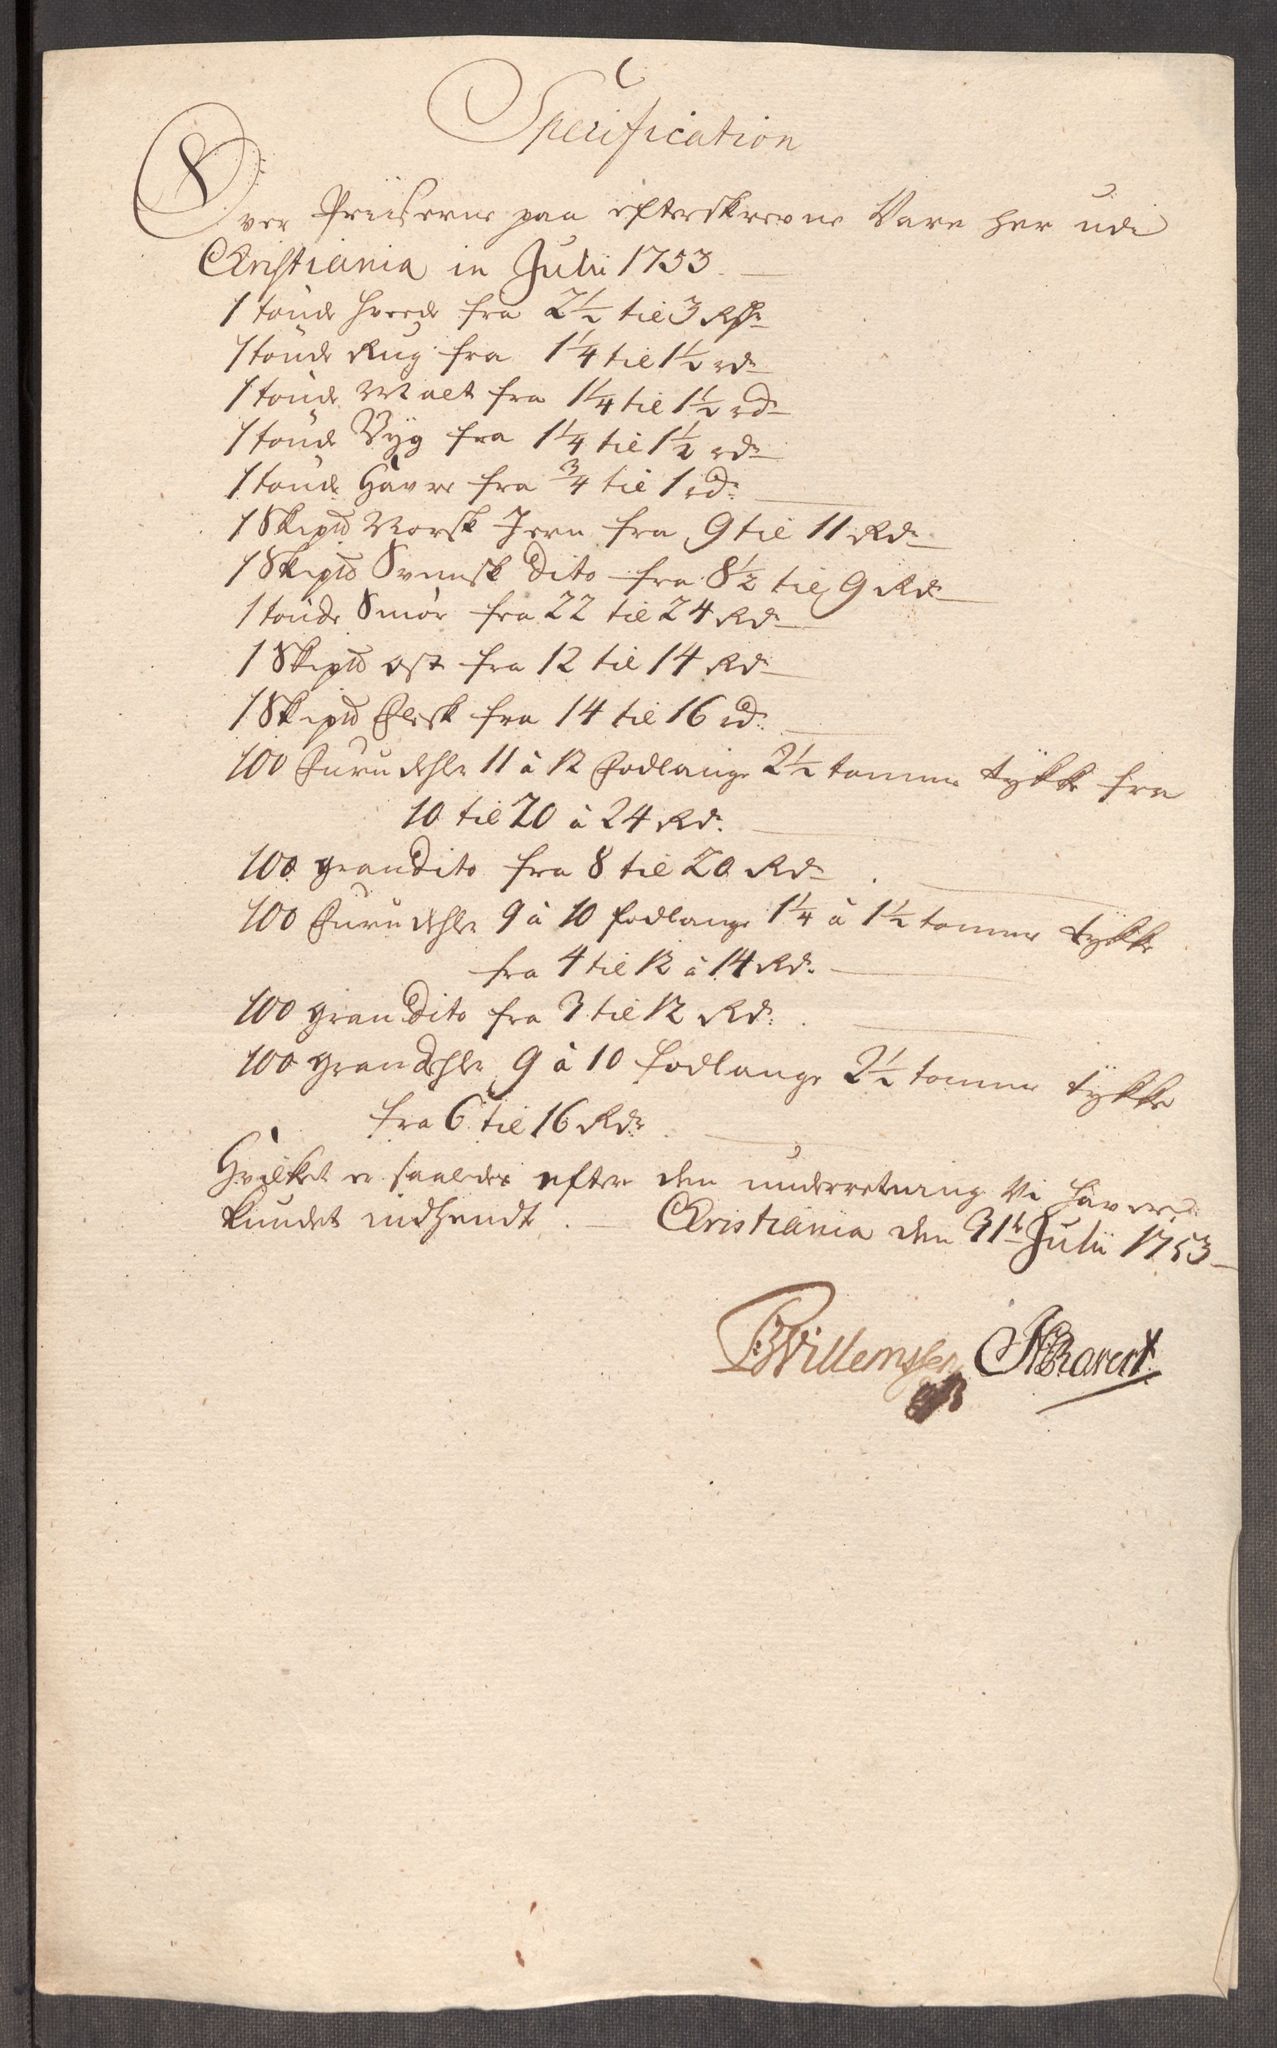 Specification
Over Priiserne paa efterskrevne Vare her udi
Christiania in Julii 1753.
1 tönde Hvede fra 2½ til 3 Rdr
1 tönde Rug fra 1¼ til 1½ rdr
1 tönde Malt fra 1¼ til 1½ rdr
1 tönde Byg fra 1¼ til 1½ rdr
1 tönde Havre fra ¾ til 1 rdr
1 Skipd Norsk Jern fra 9 til 11 Rdr
1 Skipd Svensk Dito fra 8½ til 9 Rdr
1 tönde Smör fra 22 til 24 Rdr
1 Skipd Ost fra 12 til 14 Rdr
1 Skipd Flesk fra 14 til 16 rdr
100 Furu dehle 11 à 12 Fodlange 2½ tomme tykke fra
10 til 20 à 24 Rdr.
100 gran Dito fra 8 til 20 Rdr
100 Furu dehle 9 à 10 fodlange 1¼ à 1½ tomme tykke
fra 4 til 12 à 14 Rdr.
100 gran Dito fra 3 til 12 Rdr.
100 gran dehle 9 à 10 fodlange 2½ tomme tykke
fra 6 til 16 Rdr
Hvilket er saaledes efter den underretning Vi haver
kundet indhendt. Christiania den 31te Julii 1753
BWillemssen